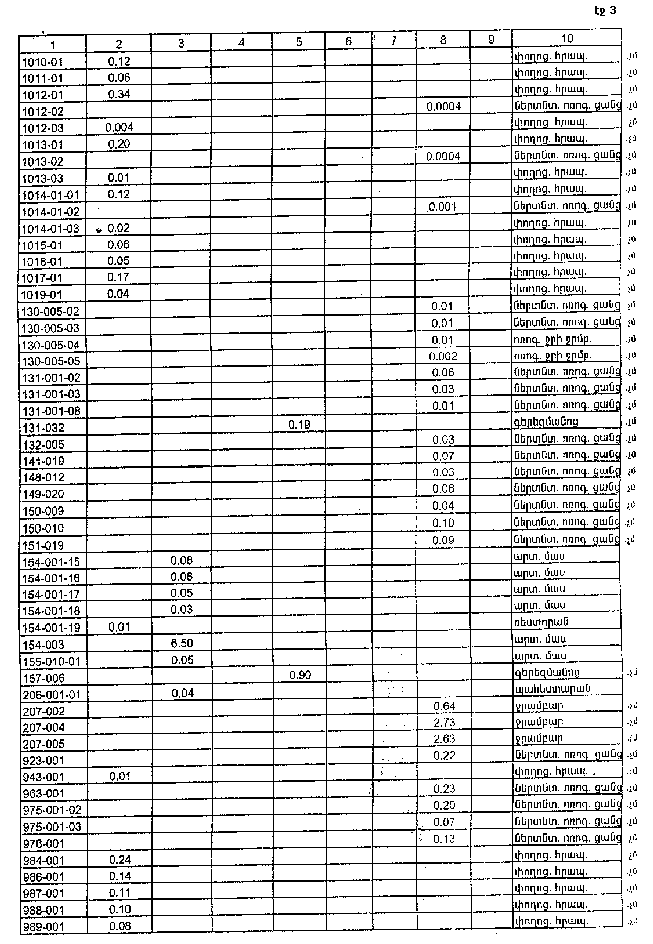 էջ 3
1 2 3 4 5 6 7 8 9 10
1010-01 0.12 փողոց. հրապ. չմ
1011-01 0.06 փողոց. հրապ. չմ
1012-01 0.34 փողոց. հրապ. չմ
1012-02 0.0004 ներտնտ. ոռոգ. ցանց չմ
1012-03 0.004 փողոց. հրապ. չմ
1013-01 0.20 փողոց. հրապ. չմ
1013-02 0.0004 ներտնտ. ոռոգ. ցանց չմ
1013-03 0.01 փողոց. հրապ. չմ
1014-01-01 0.12 փողոց. հրապ. չմ
1014-01-02 0.001 ներտնտ. ոռոգ. ցանց չմ
1014-01-03 0.02 փողոց. հրապ. չմ
1015-01 0.06 փողոց. հրապ. չմ
1016-01 0.05 փողոց. հրապ. չմ
1017-01 0.17 փողոց. հրապ. չմ
1019-01 0.04 փողոց. հրապ. չմ
130-005-02 0.01 ներտնտ. ոռոգ. ցանց չմ
130-005-03 0.01 ներտնտ. ոռոգ. ցանց չմ
130-005-04 0.01 ոռոգ. ջրի ջրմբ. չմ
130-005-05 0.002 ոռոգ. ջրի ջրմբ. չմ
131-001-02 0.06 ներտնտ. ոռոգ. ցանց չմ
131-001-03 0.03 ներտնտ. ոռոգ. ցանց չմ
131-001-08 0.01 ներտնտ. ոռոգ. ցանց չմ
131-032 0.19 գերեզմանոց չմ
132-005 0.03 ներտնտ. ոռոգ. ցանց չմ
141-019 0.07 ներտնտ. ոռոգ. ցանց չմ
148-012 0.03 ներտնտ. ոռոգ. ցանց չմ
149-020 0.06 ներտնտ. ոռոգ. ցանց չմ
150-009 0.04 ներտնտ. ոռոգ. ցանց չմ
150-010 0.10 ներտնտ. ոռոգ. ցանց չմ
151-019 0.09 ներտնտ. ոռոգ. ցանց չմ
154-001-15 0.06 արտ. մաս
154-001-16 0.06 արտ. մաս
154-001-17 0.05 արտ. մաս
154-001-18 0.03 արտ. մաս
154-001-19 0.01 ռեստորան
154-003 6.50 արտ. մաս
155-010-01 0.05 արտ. մաս
157-006 0.90 գերեզմանոց չմ
206-001-01 0.04 պահեստարան
207-002 0.64 ջրամբար չմ
207-004 2.73 ջրամբար չմ
207-005 2.63 ջրամբար չմ
923-001 0.22 ներտնտ. ոռոգ. ցանց չմ
943-001 0.01 փողոց. հրապ. չմ
963-001 0.23 ներտնտ. ոռոգ. ցանց չմ
975-001-02 0.20 ներտնտ. ոռոգ. ցանց չմ
975-001-03 0.07 ներտնտ. ոռոգ. ցանց չմ
976-001 0.13 ներտնտ. ոռոգ. ցանց չմ
984-001 0.24 փողոց. հրապ. չմ
986-001 0.14 փողոց. հրապ. չմ
987-001 0.11 փողոց. հրապ. չմ
988-001 0.10 փողոց. հրապ. չմ
989-001 0.08 փողոց. հրապ. չմ